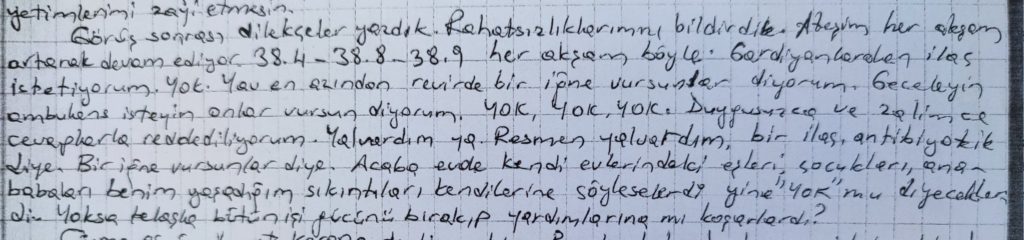 yetimlerimi zayi etmesin.
Görüş sonrası dilekçeler yazdık. Rahatsızlıklarımı bildirdik. Ateşim her akşam
artarak devam ediyor 38.4 - 38.8 - 38.9 her akşam böyle. Gardiyanlardan ilaç
istetiyorum. Yok. Yav en azından revirde bir iğne vursunlar diyorum. Geceleyin
ambulans isteyin onlar vursun diyorum. YOK, YOK, YOK. Duygusuzca ve zalimce
cevaplarla reddediliyorum. Yalvardım ya. Resmen yalvardım, bir ilaç, antibiyotik
diye. Bir iğne vursunlar diye. Acaba evde kendi evlerindeki eşleri, çocukları, ana-
babaları benim yaşadığım sıkıntıları kendilerine söyleselerdi yine "YOK" mu diyecekler
di. Yoksa telaşla bütün işi gücünü bırakıp yardımlarına mı koşarlardı?